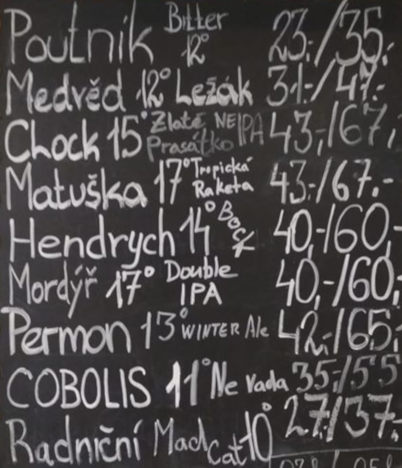 Poutník Bitter 12° 23,-/35,-
Medvěd 12° Ležák 31,-/47,-
Chock 15° Zlaté Prasátko NEIPA 43,-/67,-
Matuška 17° Tropická Raketa 43,-/67,-
Hendrych 14° Bock 40,-/60,-
Mordýř 17° Double IPA 40,-/60,-
Permon 13° WINTER Ale 42,-/65,-
COBOLIS 11° Ne vada 35,-/55
Radniční Mad Cat 10° 27,-/37,-